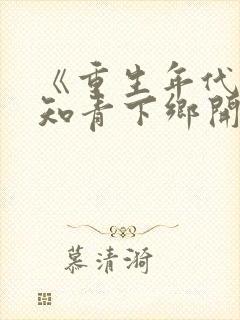 《重生年代
知青下乡開
慕清漪